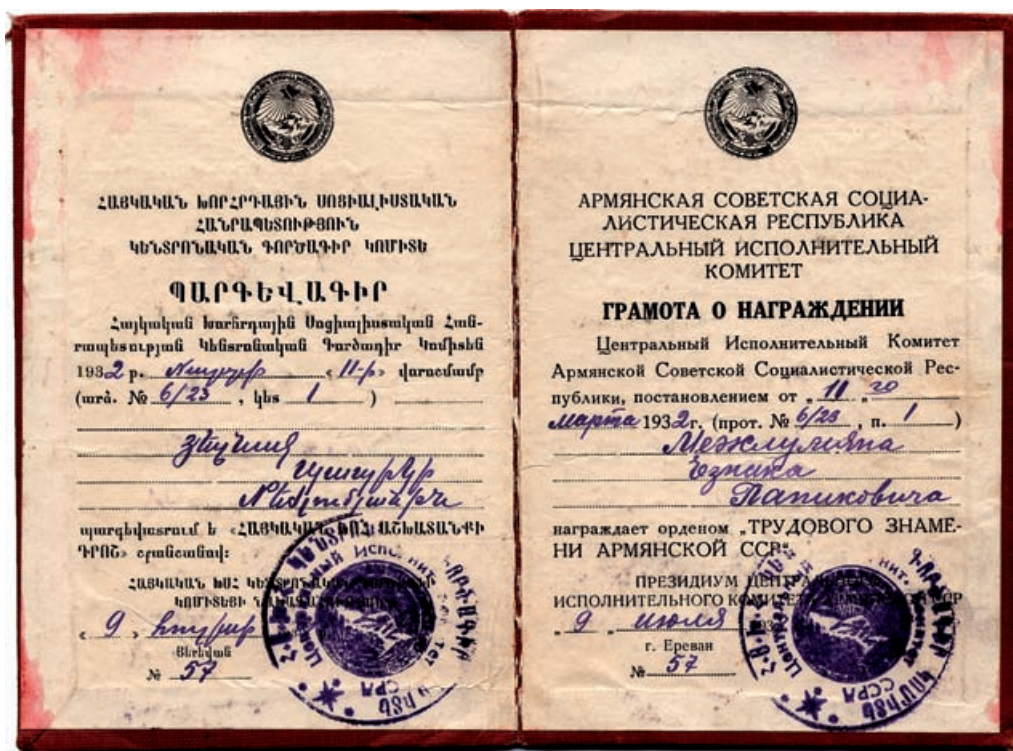 ՀԱՅԿԱԿԱՆ ԽՈՐՀՐԴԱՅԻՆ ՍՈՑԻԱԼԻՍՏԱԿԱՆ
ՀԱՆՐԱՊԵՏՈՒԹՅՈՒՆ
ԿԵՆՏՐՈՆԱԿԱՆ ԳՈՐԾԱԴԻՐ ԿՈՄԻՏԵ
ՊԱՐԳԵՎԱԳԻՐ
Հայկական Խորհրդային Սոցիալիստական Հան-
րապետության Կենտրոնական Գործադիր Կոմիտեն
1932 թ. « 11-ի» վորոշմամբ
(արձ. № 6/23 , կետ 1 )
պարգեվատրում է «ՀԱՅԿԱԿԱՆ ԽՍՀ ԱՇԽԱՏԱՆՔԻ
ԴՐՈՇ» շքանշանով:
ՀԱՅԿԱԿԱՆ ԽՍՀ ԿԵՆՏՐՈՆԱԿԱՆ
ԿՈՄԻՏԵՅԻ
« 9 » հուլիսի
Յերեվան
№ 57
АРМЯНСКАЯ СОВЕТСКАЯ СОЦИА-
ЛИСТИЧЕСКАЯ РЕСПУБЛИКА
ЦЕНТРАЛЬНЫЙ ИСПОЛНИТЕЛЬНЫЙ
КОМИТЕТ
ГРАМОТА О НАГРАЖДЕНИИ
Центральный Исполнительный Комитет
Армянской Советской Социалистической Рес-
публики, постановлением от „ 11 „ го
марта 1932г. (прот. № 6/23 , п. 1 )
Межлумяна
Езнака
Папиковича
награждает орденом „ТРУДОВОГО ЗНАМЕ-
НИ АРМЯНСКОЙ ССР“
ПРЕЗИДИУМ ЦЕНТРАЛЬНОГО
ИСПОЛНИТЕЛЬНОГО КОМИТЕТА ССР
„ 9 „ июля 193
г. Ереван
№ 57